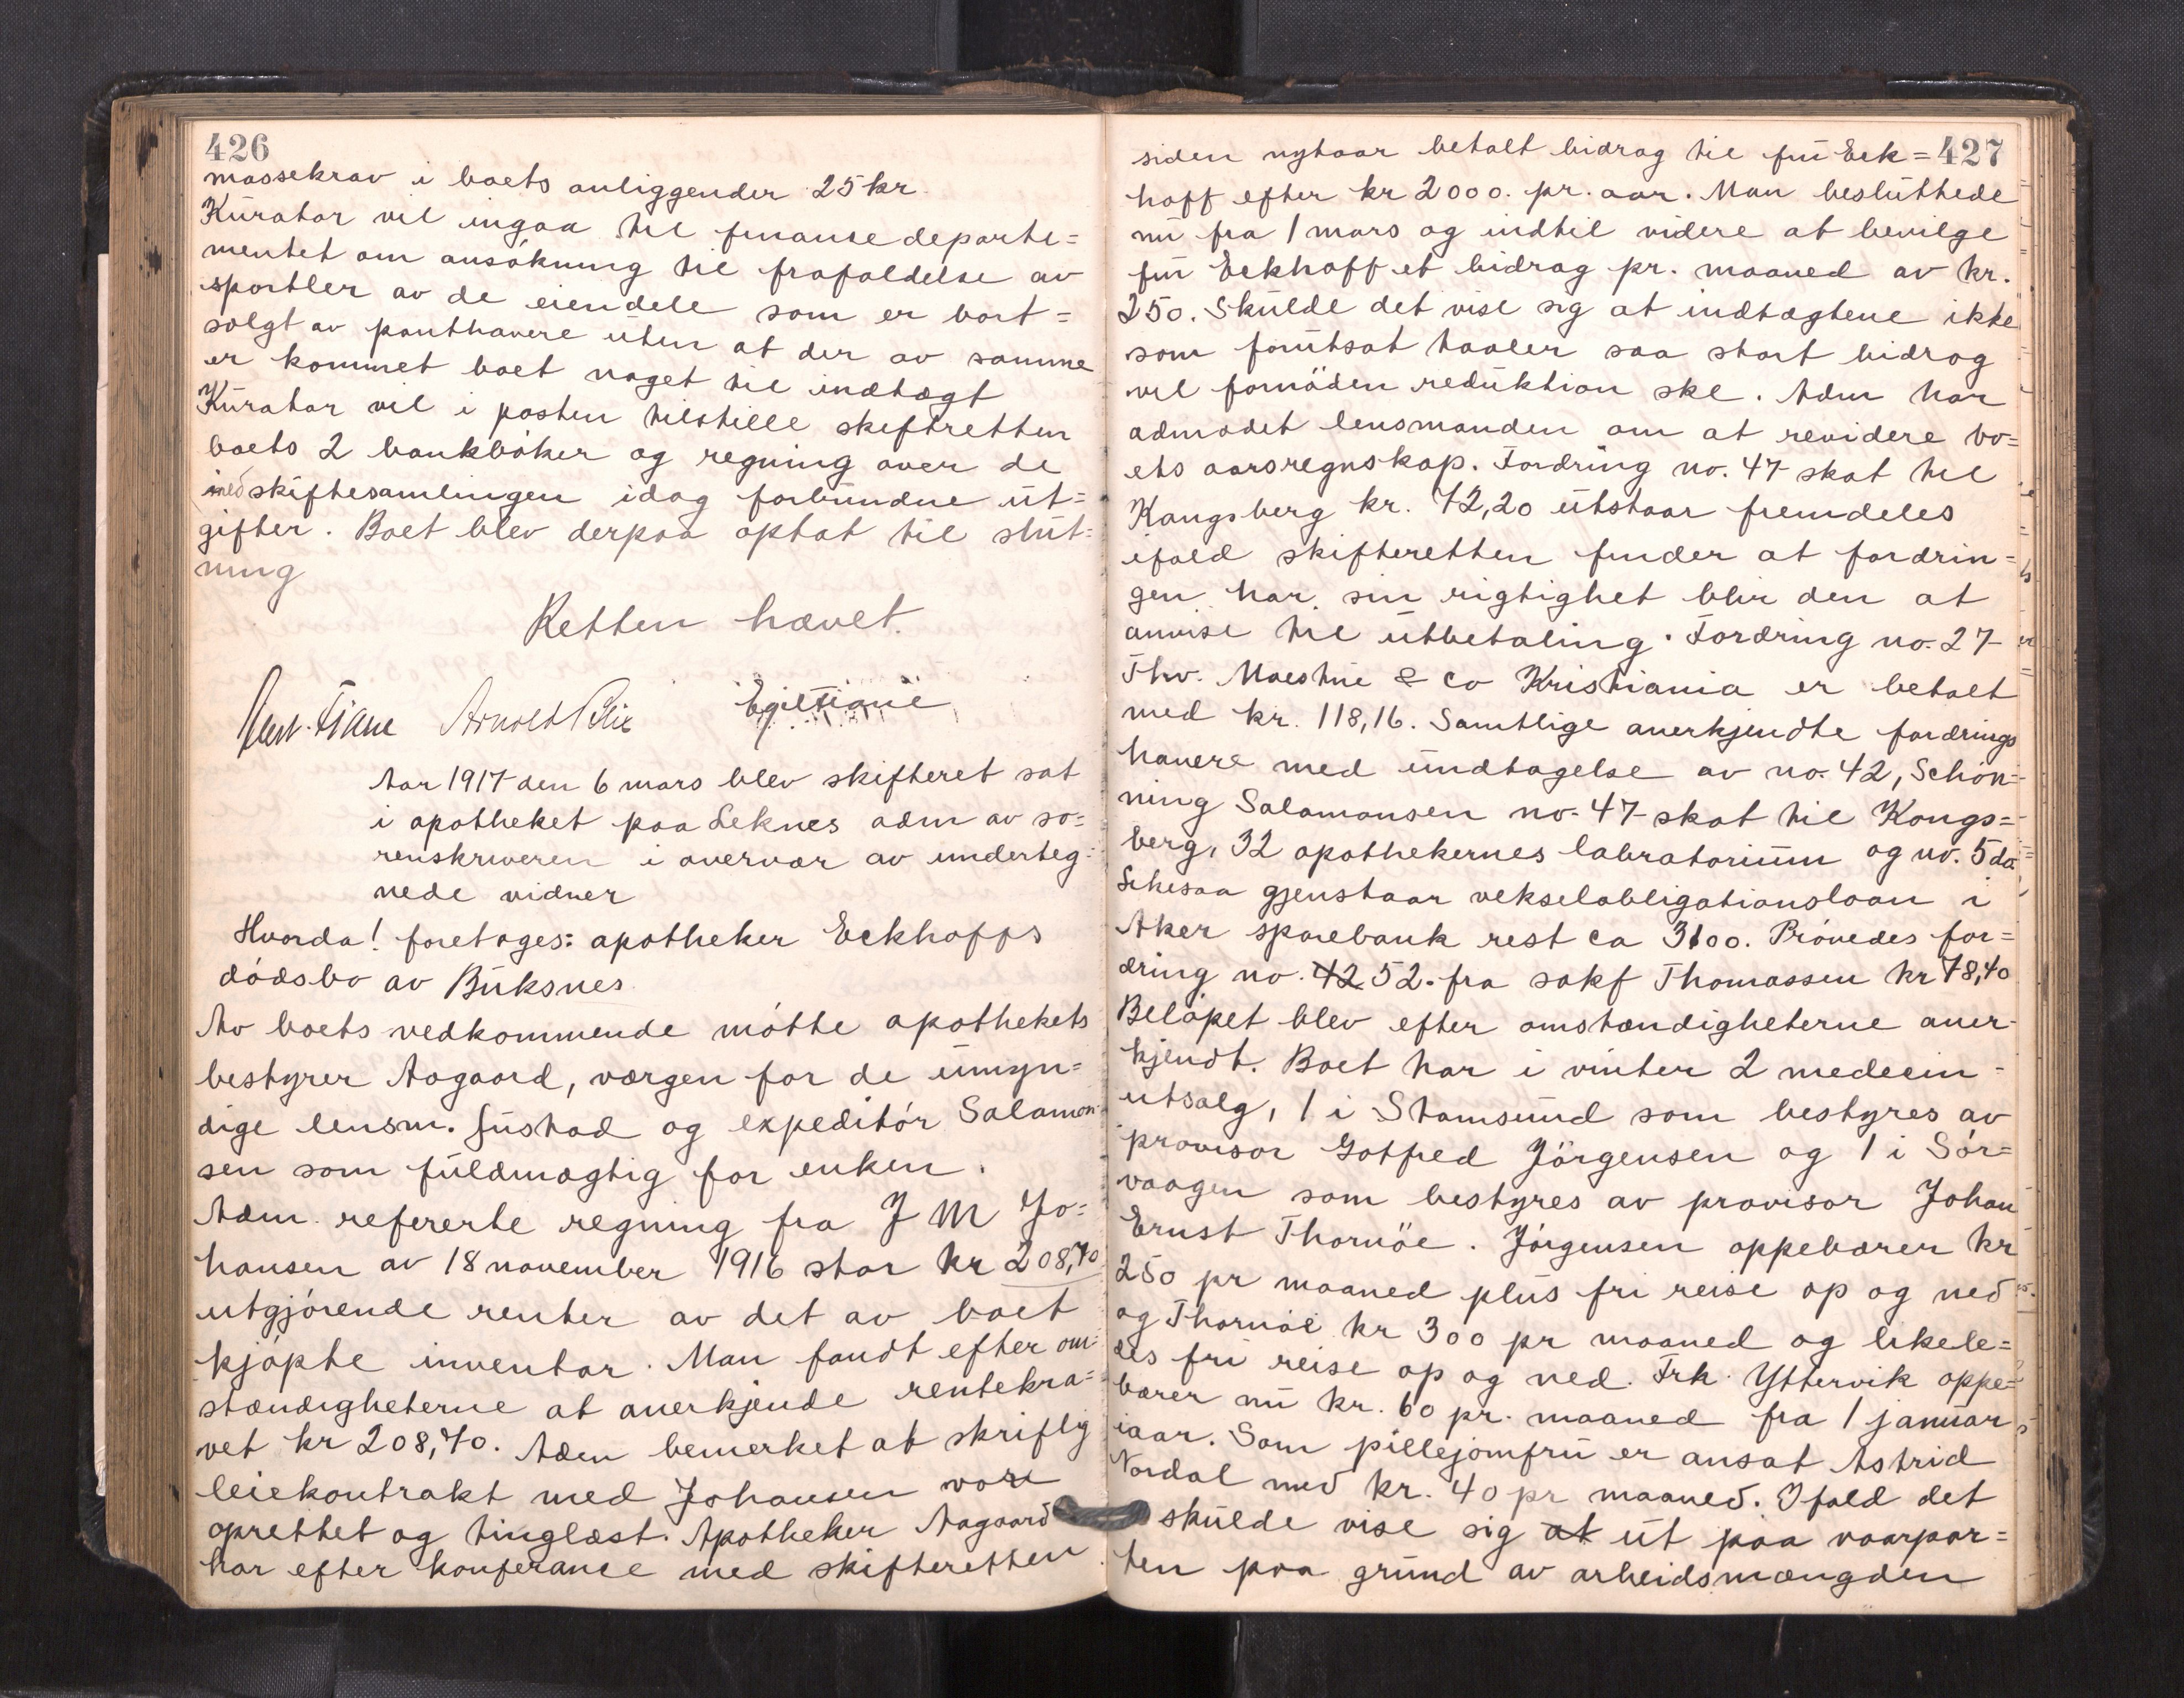 426
massekrav i boets anliggender 25 kr.
Kurator vil ingaa til finansedeparte=
mentet om ansøkning til frafaldelse av
sportler av de eiendele som er bort=
solgt av panthavere uten at der av samme
er kommet boet noget til indtægt
Kurator vil i posten tilstille skifteretten
boets 2 bankbøker og regning over de
med skiftesamlingen idag forbundne ut=
gifter. Boet blev derpaa optat til slut=
ning
Retten hævet.
Tiane Arnold Egil Tiane
Aar 1917 den 6 mars blev skifteret sat
i apotheket paa Leknes adm av so=
renskriveren i overvær av underteg=
nede vidner
Hvorda! foretages: apotheker Eckhoffs
dødsbo av Buksnes
Av boets vedkommende møtte apothekets
bestyrer Aagaard, værgen for de umyn=
dige lensm. Justad og expeditør Salamon=
sen som fuldmægtig for enken.
Adm. refererte regning fra J M Jo=
hansen av 18 november 1916 stor kr 208,70
utgjørende renter av det av boet
kjøpte inventar. Man fandt efter om=
stændigheterne at anerkjende rentekra=
vet kr 208,70. Adm bemerket at skriftlig
leiekontrakt med Johansen var
oprettet og tinglæst. Apotheker Aagaard
har efter konferance med skifteretten
427
siden nytaar betalt bidrag til fru Eck=
hoff efter kr 2000. pr. aar. Man besluttede
nu fra 1 mars og indtil videre at bevilge
fru Eckhoff et bidrag pr. maaned av kr.
250. Skulde det vise sig at indtægtene ikke
som forutsat taaler saa stort bidrag
vil fornøden reduktion ske. Adm har
admodet lensmanden om at revidere bo=
ets aarsregnskap. Fordring no. 47 skat til
Kongsberg kr. 72,20 utstaar fremdeles
ifald skifteretten finder at fordrin=
gen har sin rigtighet blir den at
anvise til utbetaling. Fordring no. 27
Thv. Moestue & Co Kristiania er betalt
med kr. 118,16. Samtlige anerkjendte fordrings
havere med undtagelse av no. 42, Schøn=
ning Salamonsen no. 47 skat til Kongs=
berg, 32 apothekernes labratorium og no. 5 da
gjenstaar vekselobligationslaan i
Aker sparebank rest ca 3100. Prøvedes for=
dring no. 42 52. fra sakf Thomassen kr 78,40
Beløpet blev efter omstændigheterne aner=
kjendt. Boet har i vinter 2 medecin=
utsalg, 1 i Stamsund som bestyres av
provisor Gotfred Jörgensen og 1 i Sør=
vaagen som bestyres av provisor Johan
Ernst Thornöe. Jörgensen oppebærer kr
250 pr maaned plus fri reise op og ned
og Thornöe kr 300 pr maaned og likele=
des fri reise op og ned. Frk. Yttervik oppe=
bærer nu kr. 60 pr. maaned fra 1 januar
iaar. Som pillejomfru er ansat Astrid
Nordal med kr. 40 pr maaned. Ifald det
skulde vise sig at ut paa vaarpar=
ten paa grund av arbeidsmængden